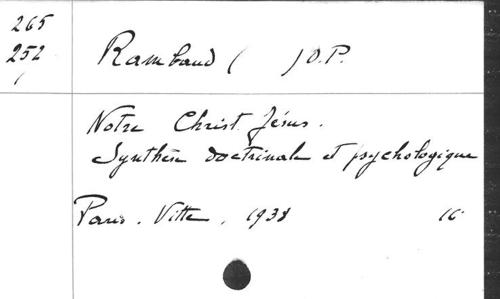 265
252
1
Rambaud (      ) O.P.
Notre Christ Jésus.
Synthèse doctrinale et psychologique
Paris. Vitte, 1938 16°